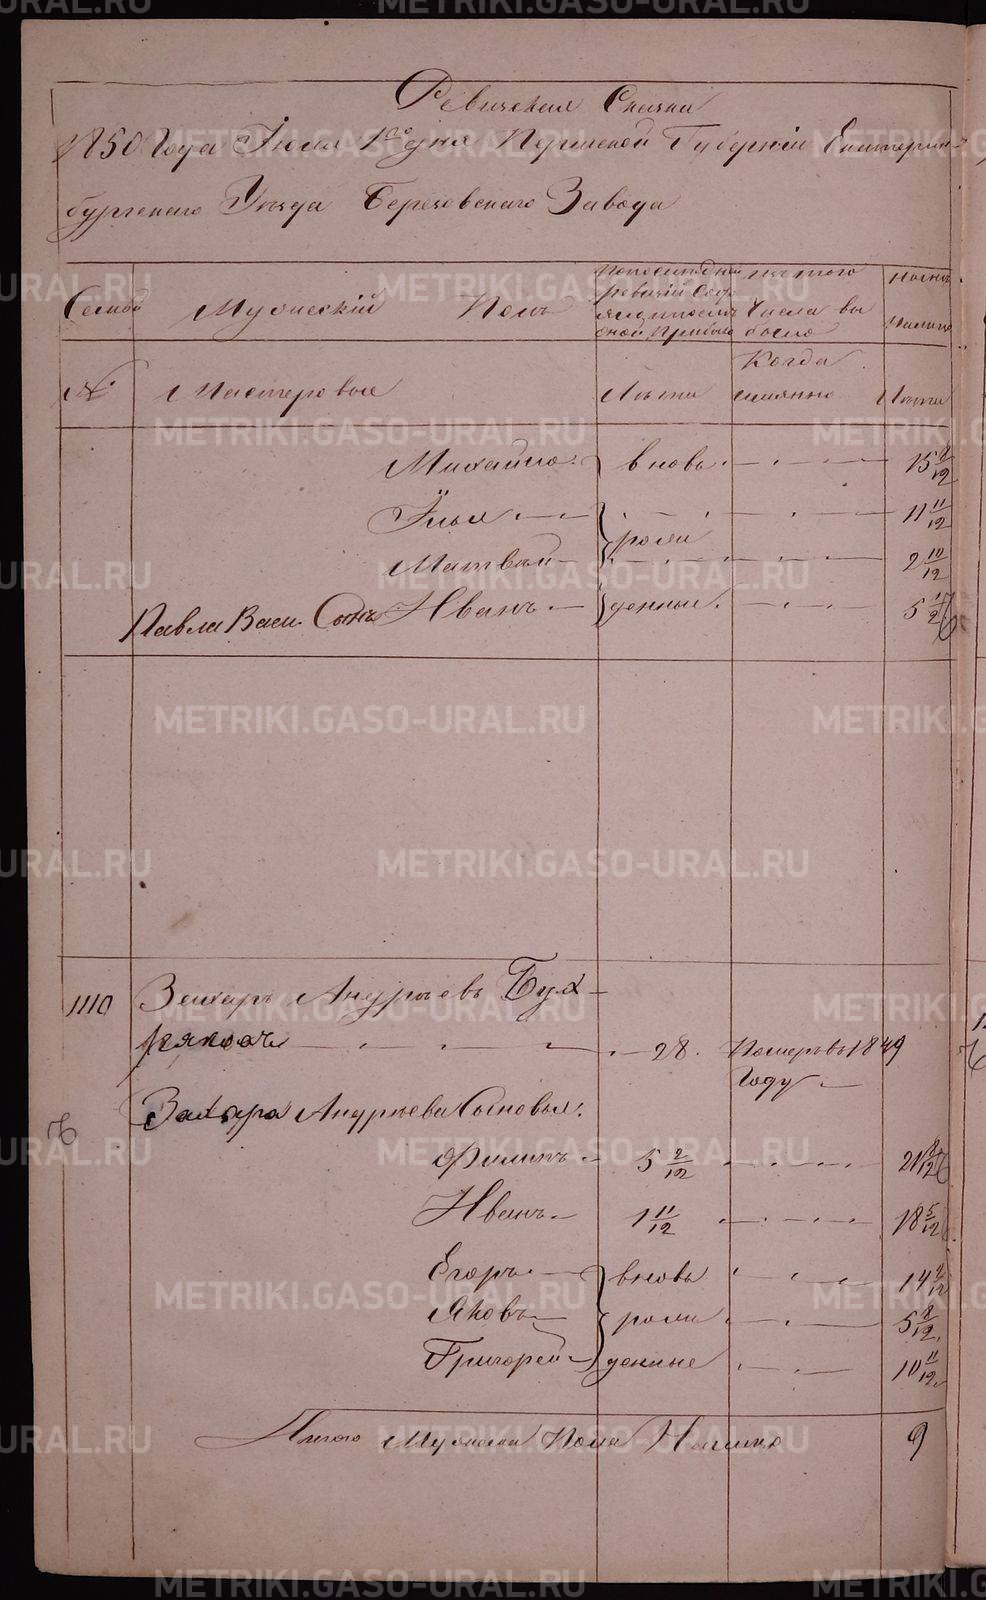 Ревижская Сказка
1850 Года Июля 1го дня Пермской Губерніи Екатерин-
бургскаго Уѣзда Березовскаго Завода
Семьи Мужескій Полъ По последней ревизіи Изъ того числа вы было Нынѣ
№ Мастеровые Лѣта Когда именно Лѣта
Михайло вновь 15 8/12
Илья 11 11/12
Матвѣй рожденные 2 10/12
Павла Васи. Сынъ Иванъ 5
1110 Захаръ Андреевъ Бух-
ряковъ 28. Померъ въ 1849
Году
Захара Андреева Сыновья:
Филипъ 5 2/12 21 2/12
Иванъ 1 11/12 18 5/12
Егоръ вновь 14
Яковъ рож 5 8/12
Григорей денние 10 11/12
Итого Мужеска Пола Налицо 9
METRIKI.GASO-URAL.RU